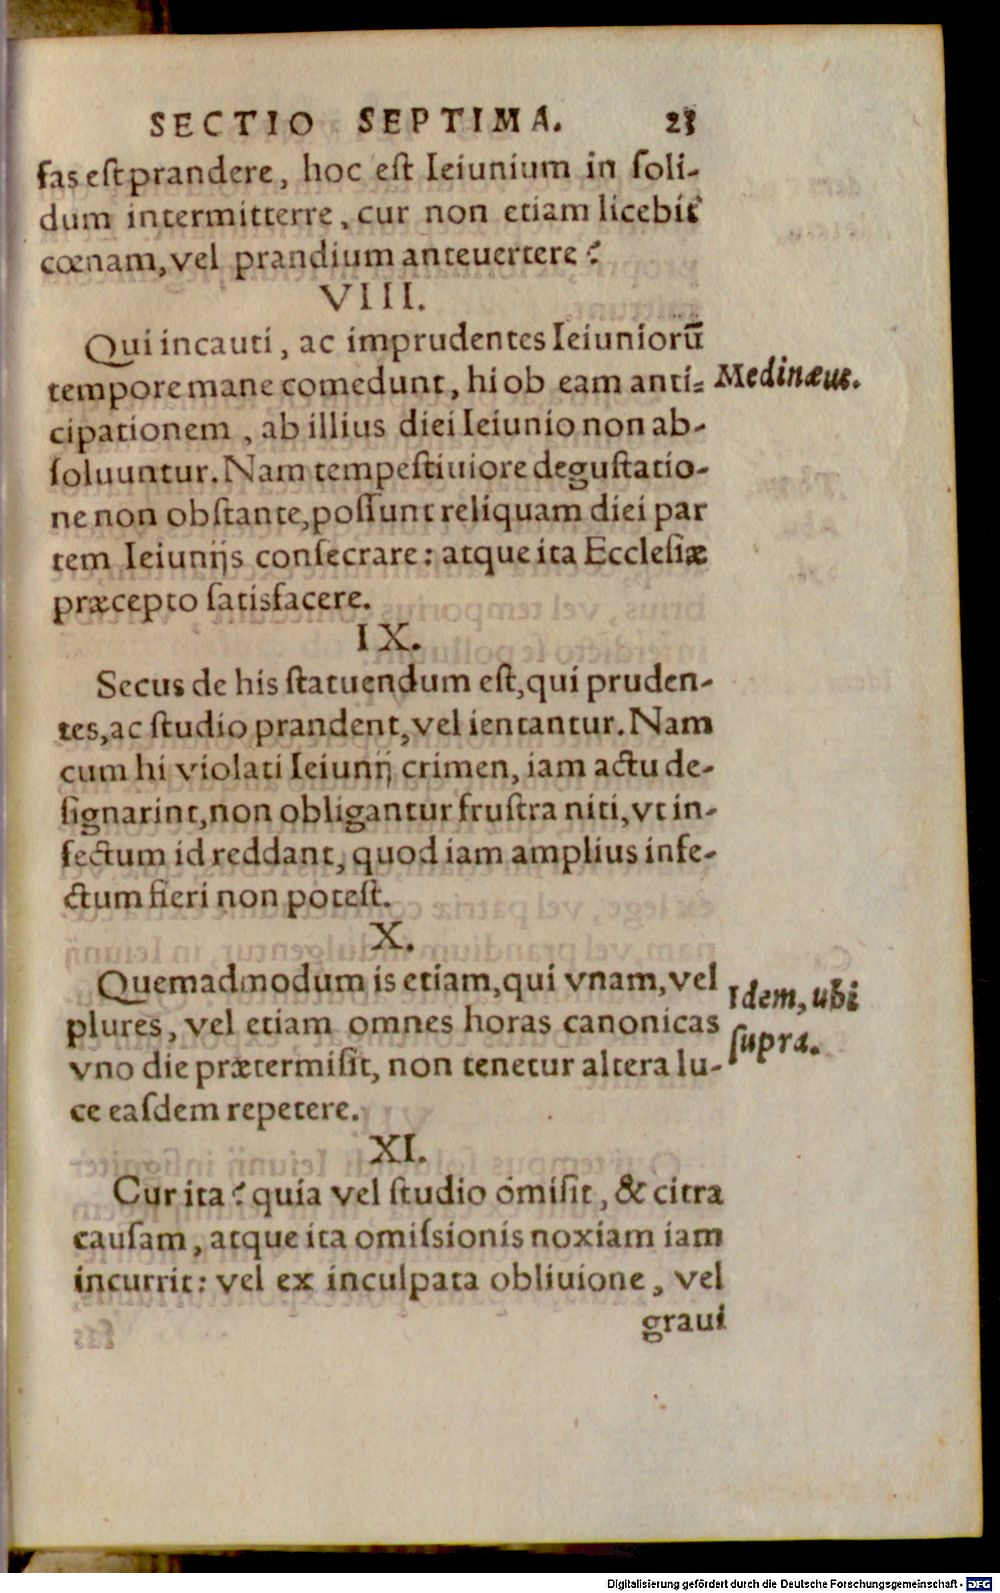 SECTIO SEPTIMA. 23
fas est prandere, hoc est Ieiunium in soli-
dum intermitterre, cur non etiam licebit
cœnam, vel prandium anteuertere?
VIII.
Qui incauti, ac imprudentes Ieiuniorū
tempore mane comedunt, hi ob eam anti- Medinæus.
cipationem, ab illius diei Ieiunio non ab-
soluuntur. Nam tempestiuiore degustatio-
ne non obstante, possunt reliquam diei par
tem Ieiunijs consecrare: atque ita Ecclesiæ
præcepto satisfacere.
IX.
Secus de his statuendum est, qui pruden-
tes, ac studio prandent, vel ientantur. Nam
cum hi violati Ieiunij crimen, iam actu de-
signarint, non obligantur frustra niti, vt in-
fectum id reddant, quod iam amplius infe-
ctum fieri non potest.
X.
Quemadmodum is etiam, qui vnam, vel Idem, ubi
plures, vel etiam omnes horas canonicas supra.
vno die prætermisit, non tenetur altera lu-
ce easdem repetere.
XI.
Cur ita? quia vel studio omisit, & citra
causam, atque ita omissionis noxiam iam
incurrit: vel ex inculpata obliuione, vel
graui
Digitalisierung gefördert durch die Deutsche Forschungsgemeinschaft - DFG